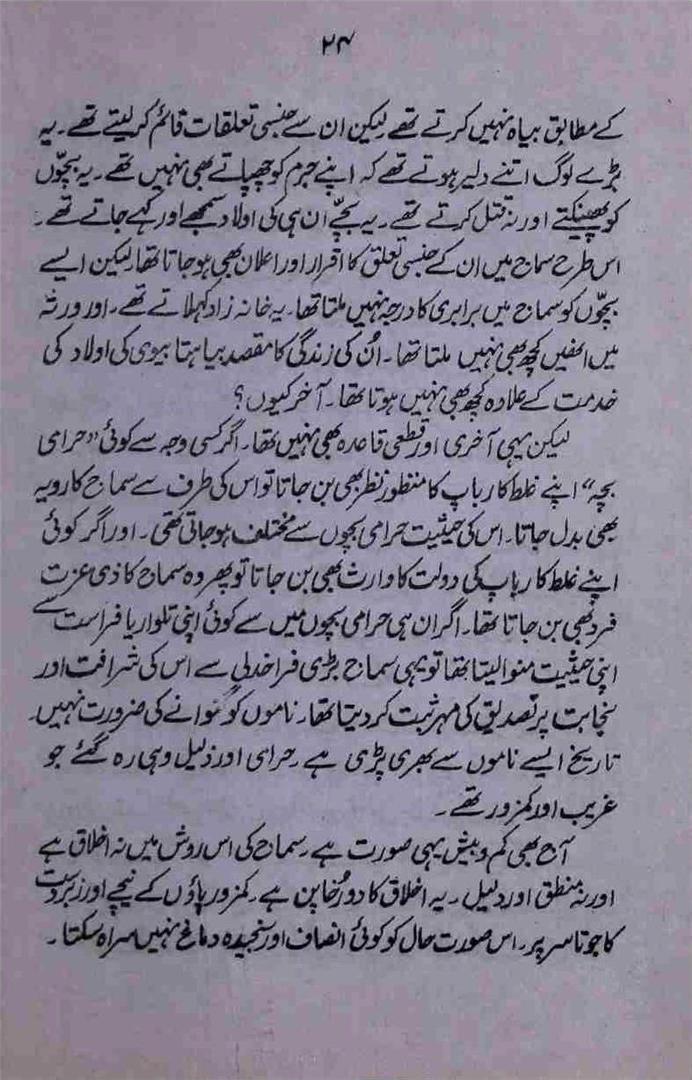 ۲۴
کے مطابق بیاہ نہیں کرتے تھے لیکن ان سے جنسی تعلقات قائم کر لیتے تھے۔ یہ
بڑے لوگ اتنے دلیر ہوتے تھے کہ اپنے جرم کو چھپاتے بھی نہیں تھے۔ یہ بچّوں
کو پھینکتے اور نہ قتل کرتے تھے۔ یہ بچّے ان ہی کی اولاد سمجھے اور کہے جاتے تھے۔
اس طرح سماج میں ان کے جنسی تعلق کا اقرار اور اعلان بھی ہو جاتا تھا لیکن ایسے
بچّوں کو سماج میں برابری کا درجہ نہیں ملتا تھا۔ یہ خانہ زاد کہلاتے تھے۔ اور ورثہ
میں انھیں کچھ بھی نہیں ملتا تھا۔ اُن کی زندگی کا مقصد بیاہتا بیوی کی اولاد کی
خدمت کے علاوہ کچھ بھی نہیں ہوتا تھا۔ آخر کیوں؟
لیکن یہی آخری اور قطعی قاعدہ بھی نہیں تھا۔ اگر کسی وجہ سے کوئی “حرامی
بچہ” اپنے غلط کار باپ کا منظور نظر بھی بن جاتا تو اس کی طرف سے سماج کا رویہ
بھی بدل جاتا۔ اس کی حیثیت حرامی بچوں سے مختلف ہو جاتی تھی۔ اور اگر کوئی
اپنے غلط کار باپ کی دولت کا وارث بھی بن جاتا تو پھر وہ سماج کا ذی عزت
فرد بھی بن جاتا تھا۔ اگر ان ہی حرامی بچوں میں سے کوئی اپنی تلوار یا فراست سے
اپنی حیثیت منوا لیتا تھا تو یہی سماج بڑی فراخدلی سے اس کی شرافت اور
نجابت پر تصدیق کی مہر ثبت کر دیتا تھا۔ ناموں کو گنوانے کی ضرورت نہیں۔
تاریخ ایسے ناموں سے بھری پڑی ہے۔ حرامی اور ذلیل وہی رہ گئے جو
غریب اور کمزور تھے۔
آج بھی کم و بیش یہی صورت ہے۔ سماج کی اس روش میں نہ اخلاق ہے
اور نہ منطق اور دلیل۔ یہ اخلاق کا دو رُخا پن ہے۔ کمزور پاؤں کے نیچے اور زبردست
کا جوتا سر پر۔ اس صورت حال کو کوئی انصاف اور سنجیدہ دماغ نہیں سراہ سکتا۔